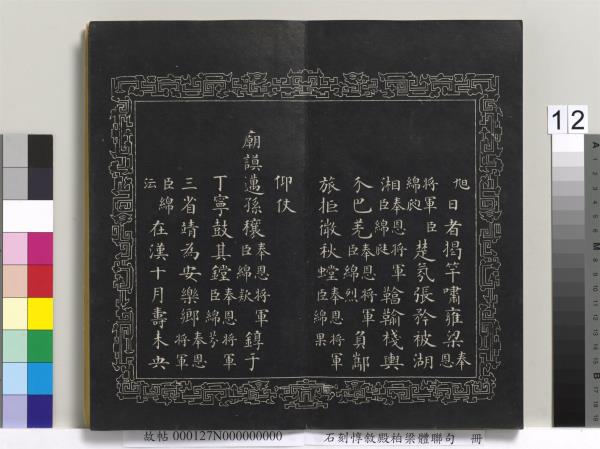 旭日者揭竿嘯雍梁奉恩
將軍臣綿楚氛張矜被湖
湘奉恩將軍臣綿棧輿
不巴羌奉恩將軍臣綿烈負鄰
旅拒徼秋螳奉恩將軍臣綿果
仰仗
廟謨邁孫穰奉恩將軍臣綿欵錞于
丁寧鼓其鏜奉恩將軍臣綿芳
三省靖為安樂鄉奉恩將軍
臣綿沄在漢十月壽未央
12
故帖 000127N000000000 石刻惇敘殿柏梁體聯句 冊